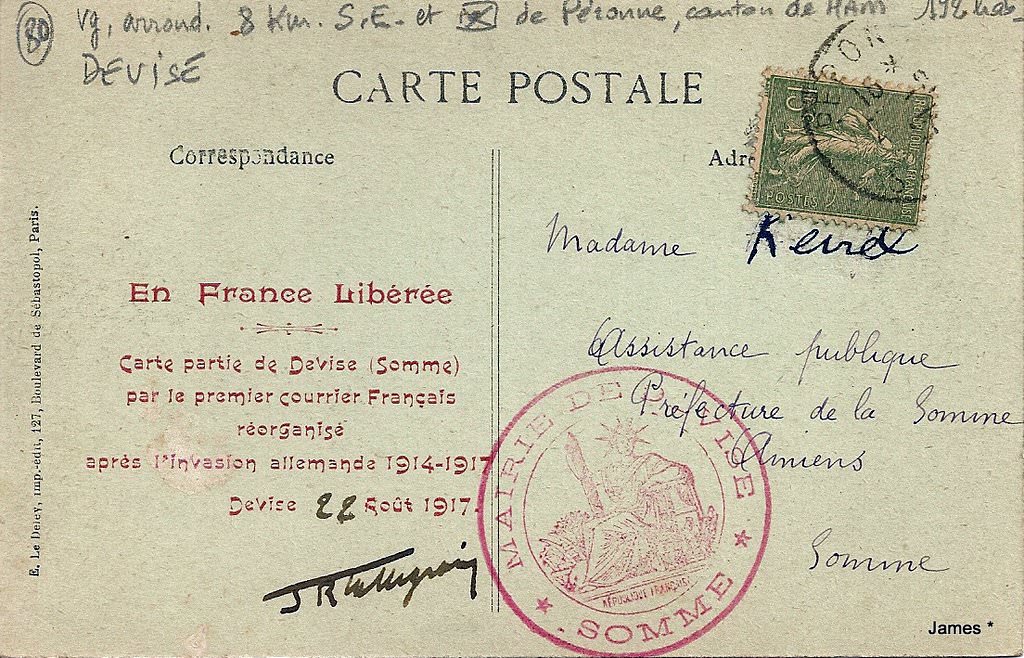 80 Vg, arrond. 8 Km. S.E. et de Péronne, canton de HAM 192 hab.
DEVISE
CARTE POSTALE
Correspondance
Adre
15
POSTES
Madame
Assistance publique
Préfecture de la Somme
Amiens
Somme
En France Libérée
Carte partie de Devise (Somme)
par le premier courrier Français
réorganisé
après l'invasion allemande 1914-1917
Devise 22 Août 1917.
MAIRIE DE DEVISE
RÉPUBLIQUE FRANÇAISE
★ SOMME ★
E. Le Deley, imp.-édit, 127, Boulevard de Sébastopol, Paris.
James *